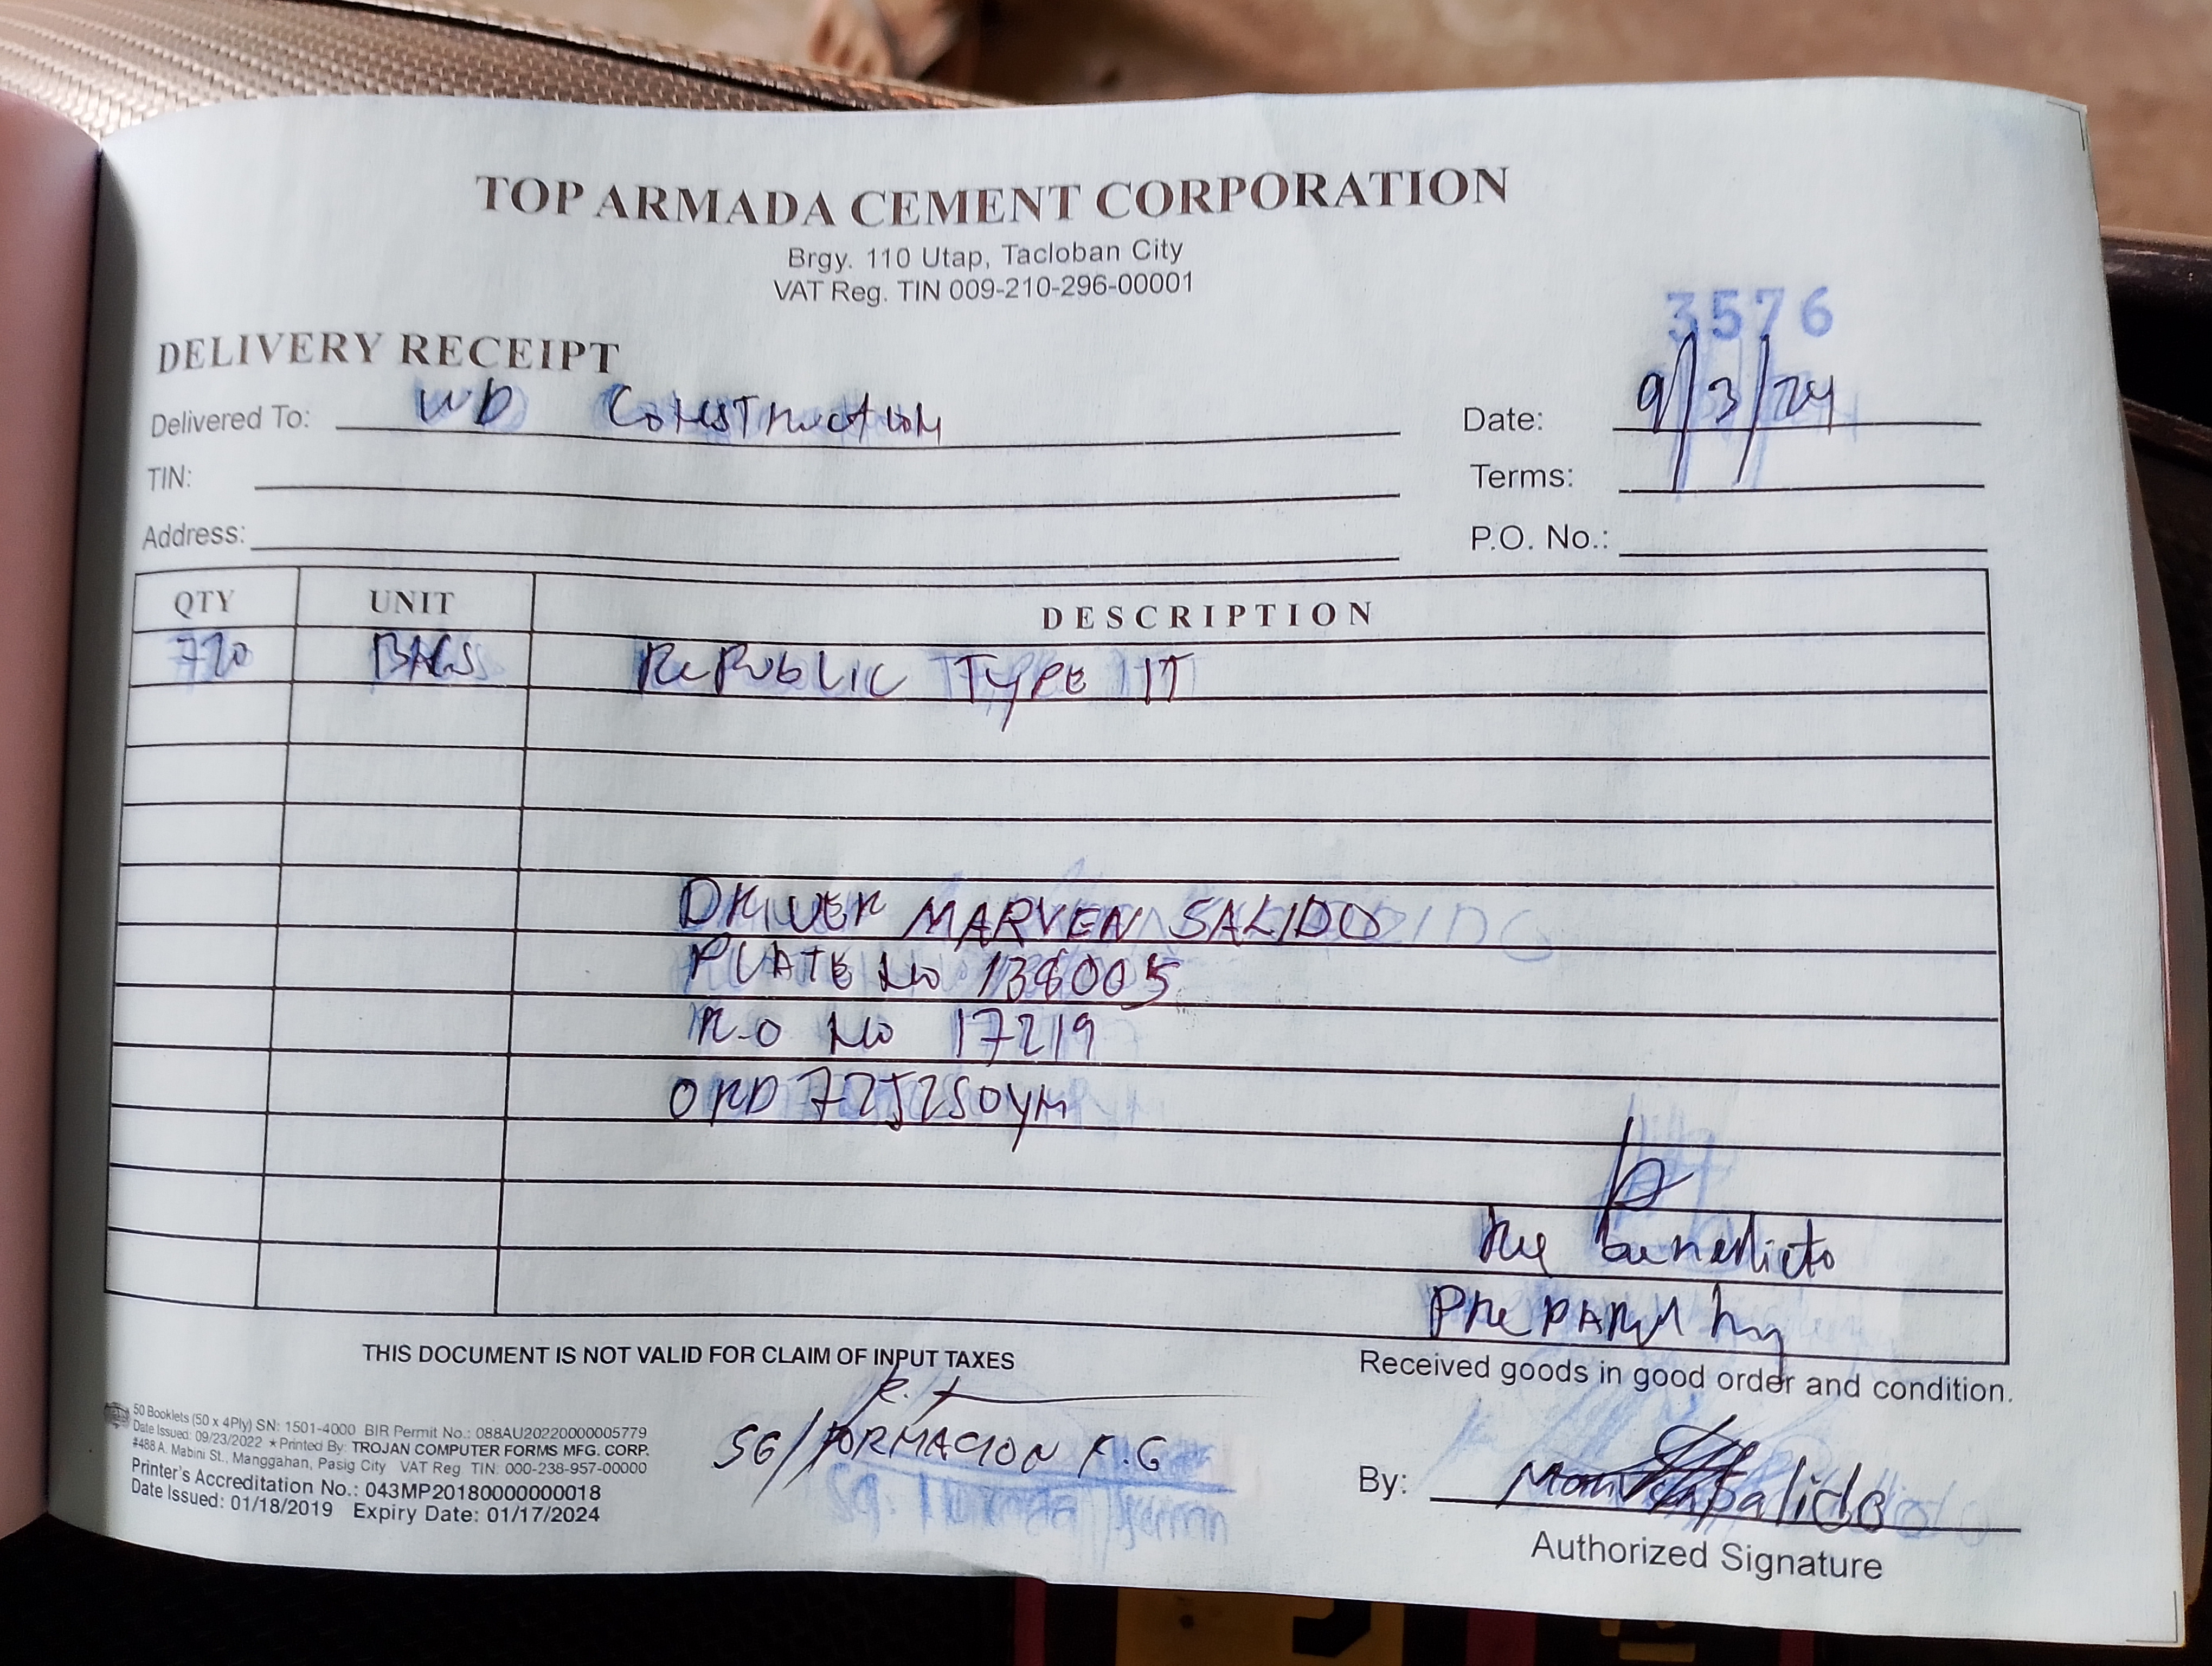 TOP ARMADA CEMENT CORPORATION
Brgy. 110 Utap, Tacloban City
VAT Reg. TIN 009-210-296-00001
3576
DELIVERY RECEIPT
Delivered To: WD Construction Date: 9/3/24
TIN: Terms:
Address: P.O. No.:
QTY UNIT DESCRIPTION
720 BAGS RePublic TYPE 1T
DRIVER MARVEN SALIDO
PLATE No 138005
R.O No 17219
ORD
benedicto
PrePARed by
THIS DOCUMENT IS NOT VALID FOR CLAIM OF INPUT TAXES
Received goods in good order and condition.
50 Booklets (50 x 4Ply) SN: 1501-4000 BIR Permit No.: 088AU20220000005779
Date Issued: 09/23/2022 ★ Printed By: TROJAN COMPUTER FORMS MFG. CORP.
#488 A. Mabini St., Manggahan, Pasig City VAT Reg TIN: 000-238-957-00000
Printer's Accreditation No.: 043MP20180000000018
Date Issued: 01/18/2019 Expiry Date: 01/17/2024
SG/FORMACION F.G
By: Marven Salido
Authorized Signature